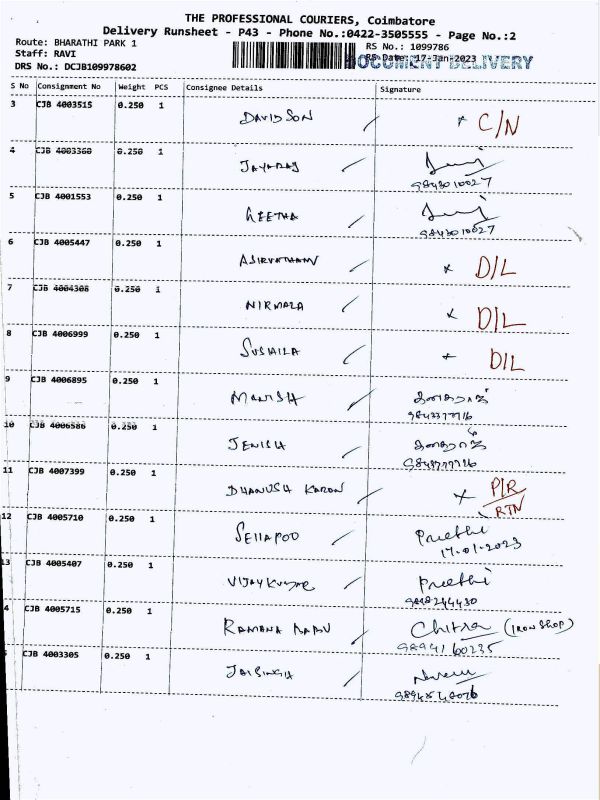 THE PROFESSIONAL COURIERS, Coimbatore
Delivery Runsheet - P43 - Phone No.:0422-3505555 - Page No.:2
Route: BHARATHI PARK 1
RS No.: 1099786
Staff: RAVI
RS Date: 17-Jan-2023
DOCUMENT DELIVERY
DRS No.: DCJB109978602
S No Consignment No Weight PCS Consignee Details Signature
3 CJB 4003515 0.250 1 DAVIDSON C/N
4 CJB 4003360 0.250 1 JAYARAJ
9843010027
5 CJB 4001553 0.250 1 GEETHA
9843010027
6 CJB 4005447 0.250 1 D/L
7 CJB 4004308 0.250 1 NIRMALA D/L
8 CJB 4006999 0.250 1 SUSHILA D/L
9 CJB 4006895 0.250 1 MANISH
10 CJB 4006586 0.250 1 JENISH
11 CJB 4007399 0.250 1 DHANUSH KARON P/R
RTN
12 CJB 4005710 0.250 1 Preethi
17-01-2023
13 CJB 4005407 0.250 1 VIJAY KUMAR Preethi
4 CJB 4005715 0.250 1 RAMANA BABU Chitra (IRON SHOP)
9894160235
CJB 4003305 0.250 1 JAISINGH